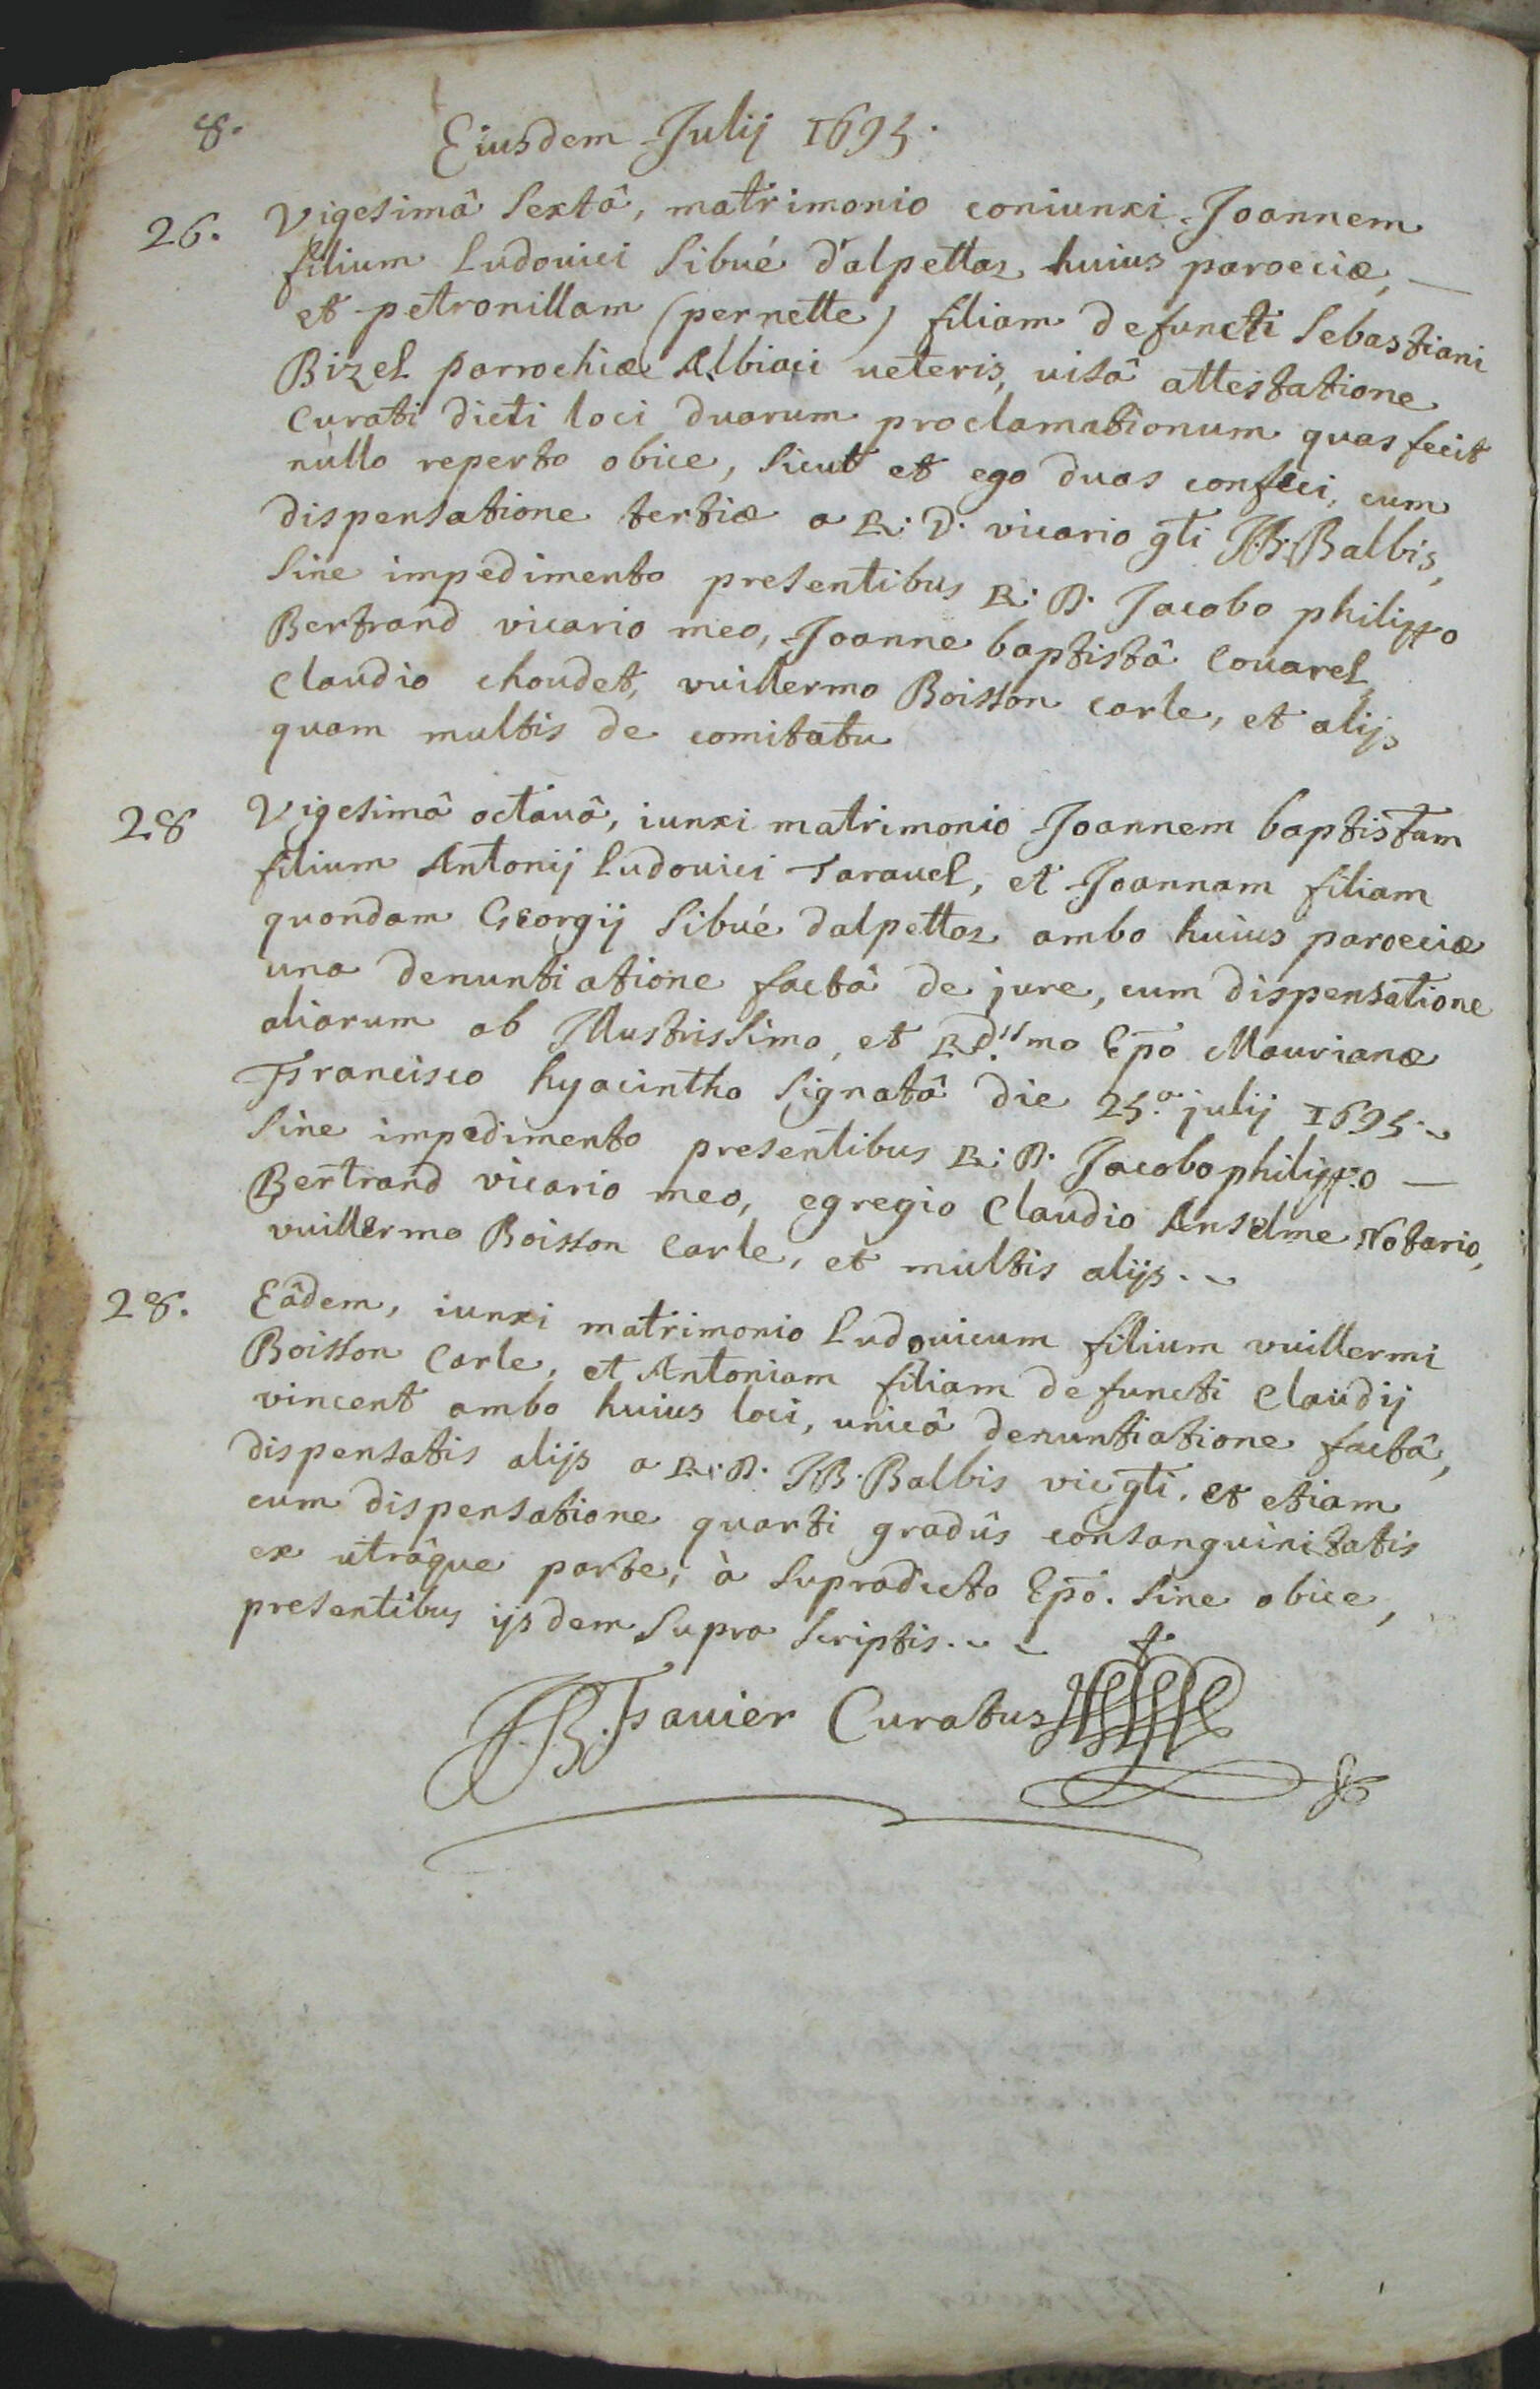 8.
Eiusdem Julij 1695.
26. Vigesimâ sextâ, matrimonio coniunxi Joannem
filium Ludouici Sibué d'alpettaz huius paroeciæ, —
et petronillam (pernette) filiam defuncti Sebastiani
Bizel parrochiæ Albiaci ueteris, uisâ attestatione
Curati dicti loci duarum proclamationum quas fecit
nùllo reperto obice, sicut et ego duas confeci, cum
dispensatione tertiæ a R: D. vicario gti J.B. Balbis,
sine impedimento presentibus R: D. Jacobo philippo
Bertrand vicario meo, Joanne baptistâ Couarel,
Claudio choudet, vuillermo Boisson carle, et alijs
quam multis de comitatu
28 Vigesimâ octauâ, iunxi matrimonio Joannem baptistam
filium Antonij Ludouici Tarauel, et Joannam filiam
quondam Georgij Sibué dalpettaz ambo huius paroeciæ
una denuntiatione factâ de jure, cum dispensatione
aliarum ab Illustrissimo, et Rd.ssmo Epo Maurianæ
Francisco hyacintho signatâ die 25.a julij 1695.
sine impedimento presentibus R: D. Jacobo philippo —
Bertrand vicario meo, egregio Claudio Anselme Notario,
vuillermo Boisson Carle, et multis alijs.
28. Eâdem, iunxi matrimonio Ludouicum filium vuillermi
Boisson Carle, et Antoniam filiam defuncti Claudij
vincent ambo huius loci, unicâ denuntiatione factâ,
dispensatis alijs a R: D. J.B. Balbis vic gti. et etiam
cum dispensatione quarti gradûs consanguinitatis
ex utrâque parte, à supradicto Epo. sine obice,
presentibus ijsdem supra scriptis.
JB. Fauier Curatus